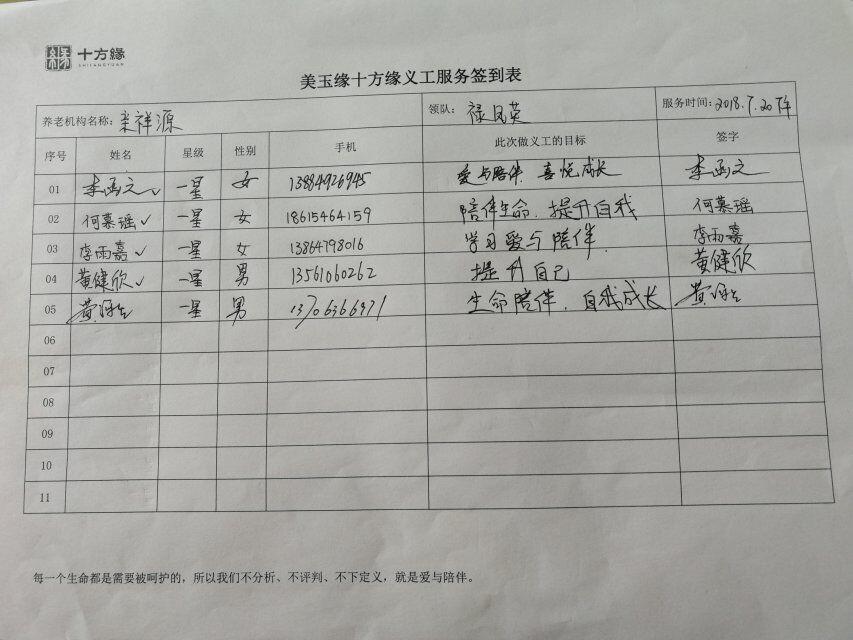 十方缘
SHIFANGYUAN
美玉缘十方缘义工服务签到表
养老机构名称: 来祥源 领队: 禄凤英 服务时间: 2018.7.20下午
序号 姓名 星级 性别 手机 此次做义工的目标 签字
01 李函文✓ 一星 女 13884926945 爱与陪伴.喜悦成长 李函文
02 何慕瑶✓ 一星 女 18615464159 陪伴生命.提升自我 何慕瑶
03 李雨嘉✓ 一星 女 13864798016 学习爱与陪伴. 李雨嘉
04 黄健欣✓ 一星 男 13561060262 提升自己 黄健欣
05 黄 一星 男 13706366971 生命陪伴.自我成长 黄
06
07
08
09
10
11
每一个生命都是需要被呵护的，所以我们不分析、不评判、不下定义，就是爱与陪伴。